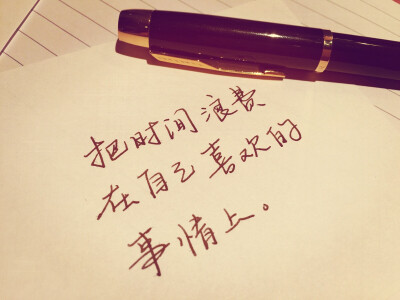 把时间浪费
在自己喜欢的
事情上。